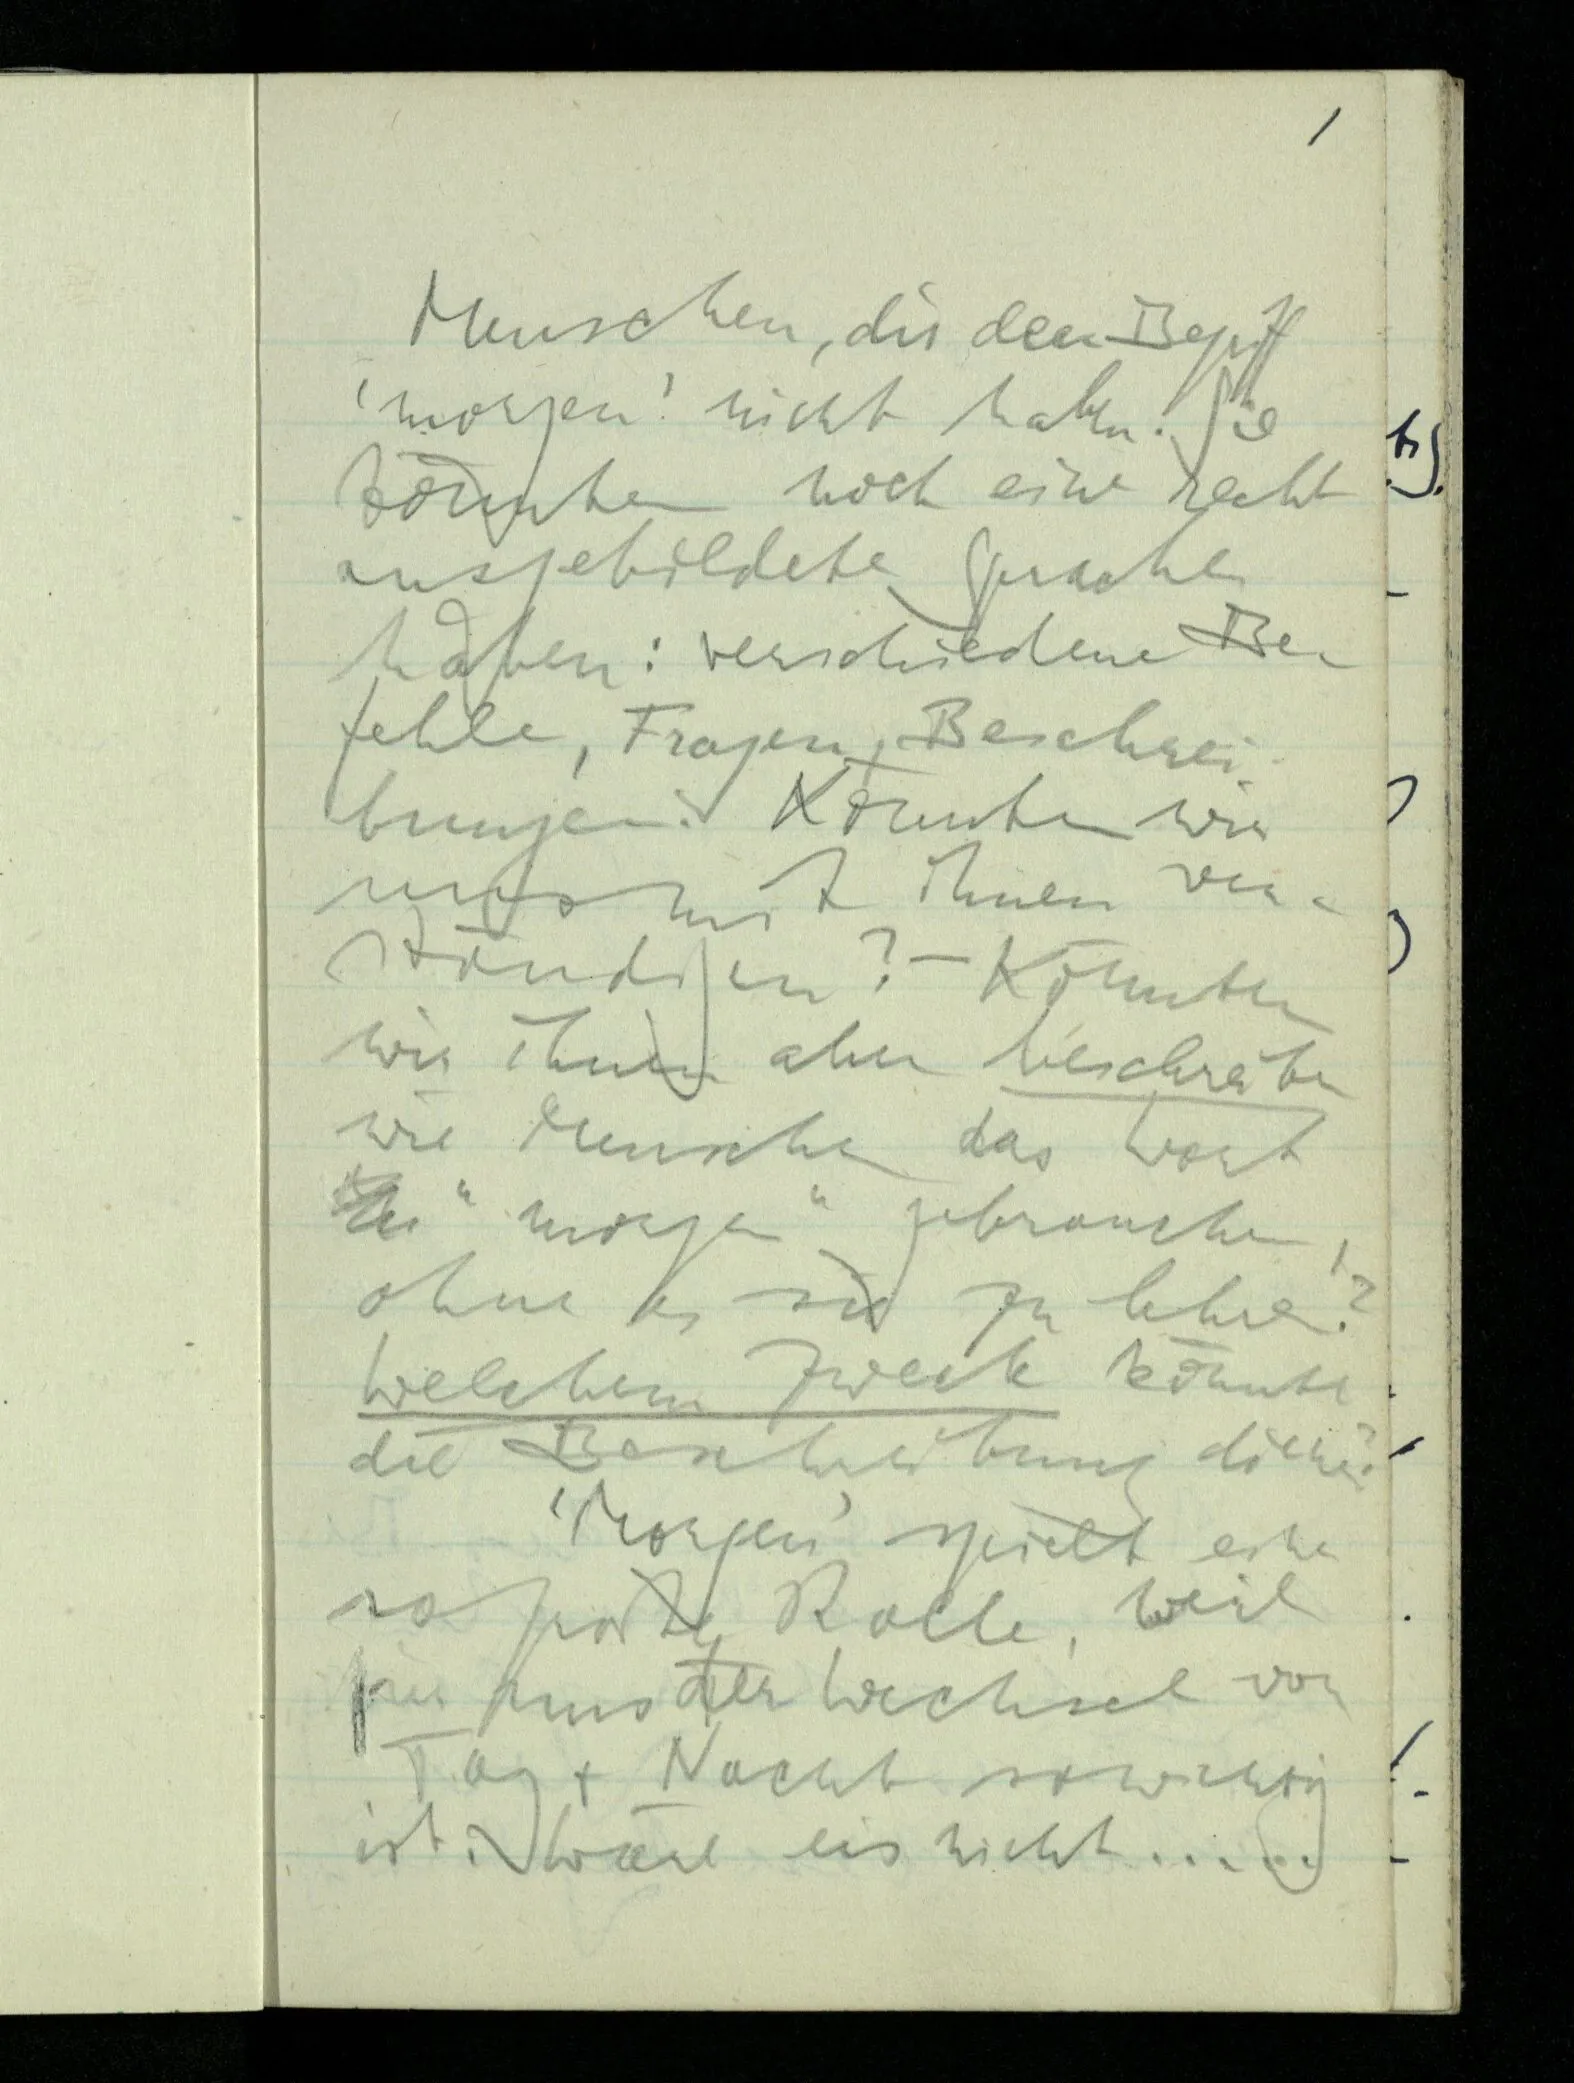 1
Menschen, die den Begriff
'morgen' nicht haben. Sie
könnten noch eine recht
ausgebildete Sprache
haben: verschiedene Be-
fehle, Fragen, Beschrei-
bungen. Könnten wir
uns mit ihnen ver-
ständigen? – Könnten
wir ihnen aber beschreiben
wie Menschen das Wort
"morgen" gebrauchen,
ohne es sie zu lehren?
Welchem Zweck könnte
die Beschreibung dienen?
'Morgen' spielt eine
so große Rolle, weil
für uns der Wechsel von
Tag + Nacht so wichtig
ist. Wäre er's nicht.....